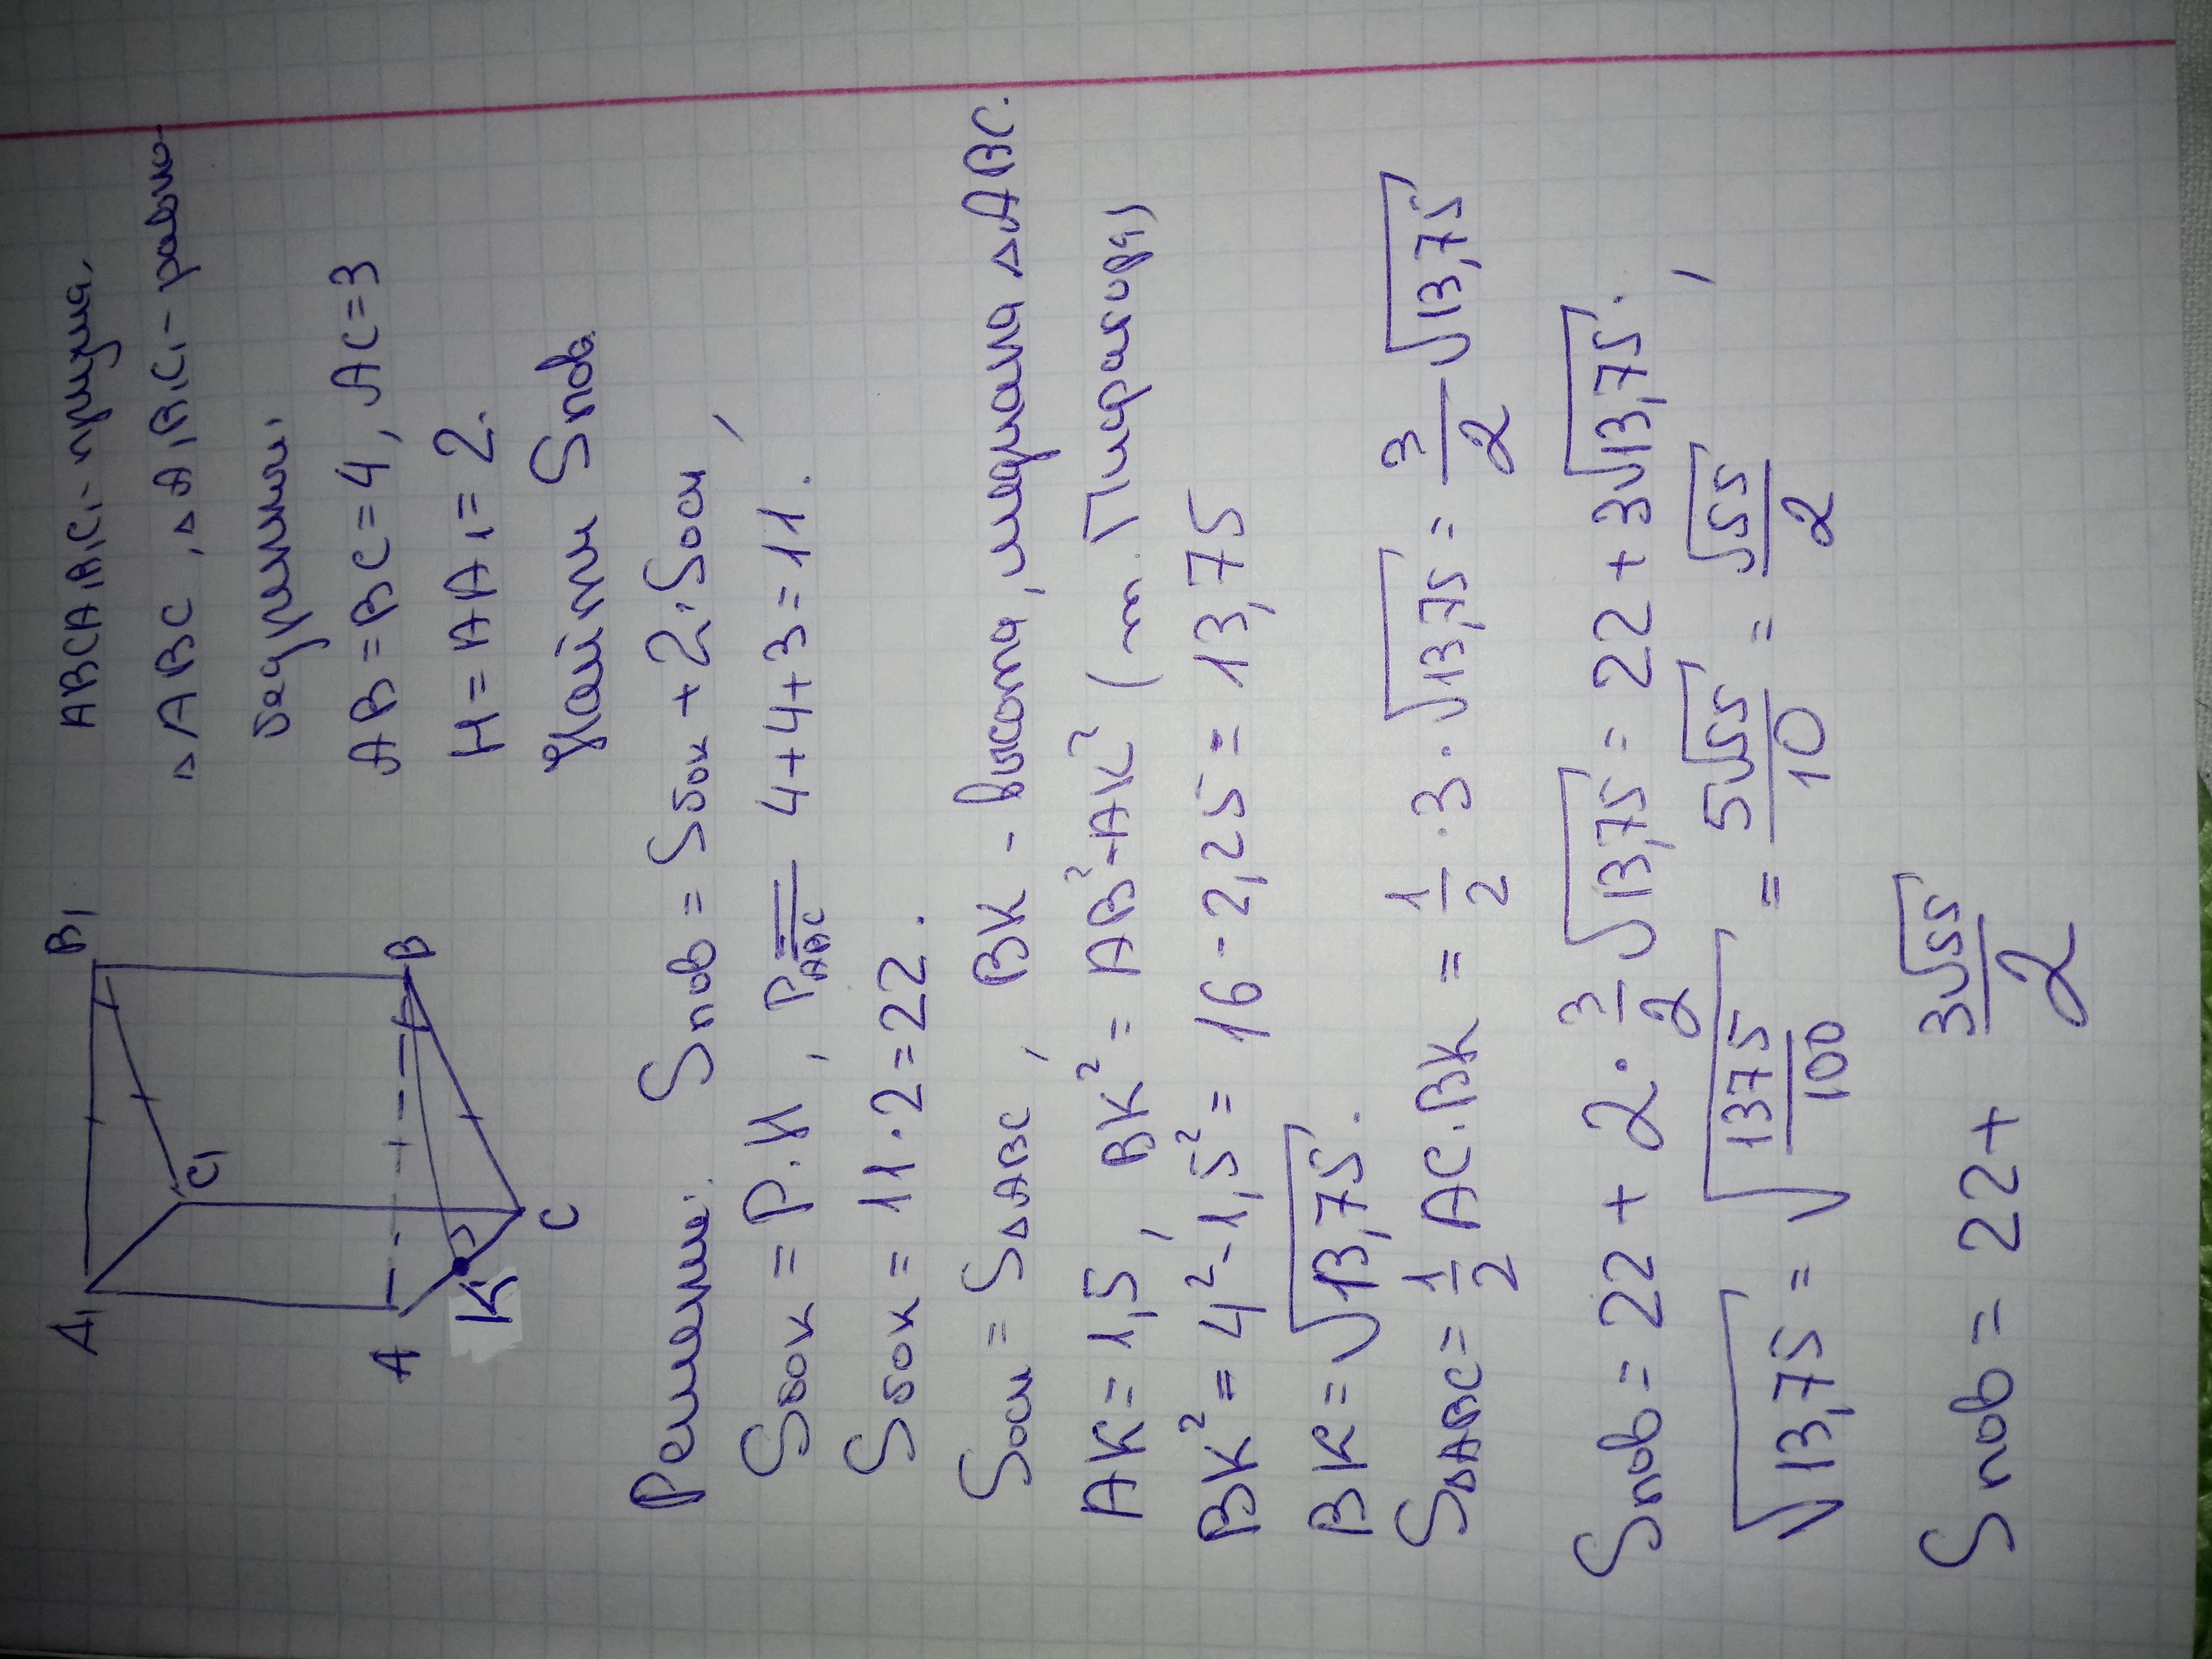 ABCA₁B₁C₁ - призма.
△ABC, △A₁B₁C₁ - равно-
бедренный.
AB = BC = 4, AC = 3
H = AA₁ = 2.
Найти Sпов
A₁
B₁
C₁
A
B
K
C
Решение: Sпов = Sбок + 2·Sосн,
Sбок = P·H, P ABC = 4+4+3 = 11.
Sбок = 11·2 = 22.
Sосн = S△ABC, BK - высота, медиана △ABC.
AK = 1,5, BK² = AB² - AK² (т. Пифагора)
BK² = 4² - 1,5² = 16 - 2,25 = 13,75
BK = √13,75.
S△ABC = 1/2 AC·BK = 1/2 · 3 · √13,75 = 3/2 √13,75
Sпов = 22 + 2 · 3/2 √13,75 = 22 + 3√13,75.
√13,75 = √1375/100 = 5√55/10 = √55/2,
Sпов = 22 + 3√55/2